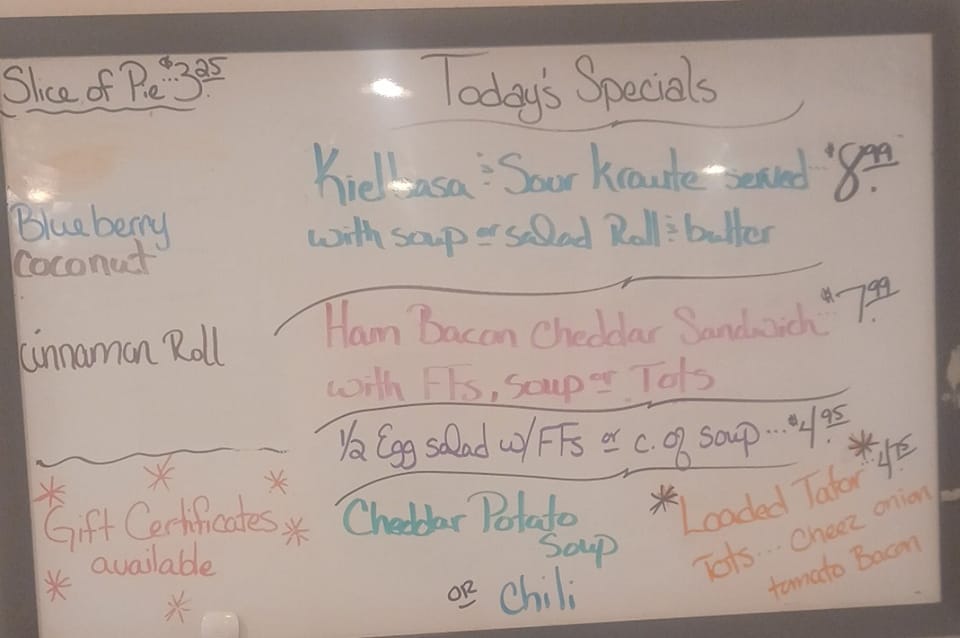 Slice of Pie $3.25
Blueberry
Coconut
Cinnamon Roll
Gift Certificates
available
Today's Specials
Kielbasa & Sour Kraute served $8.99
with soup or salad Roll & butter
Ham Bacon Cheddar Sandwich $7.99
with FFs, Soup or Tots
1/2 Egg salad w/ FFs or c. of soup...$4.95
Cheddar Potato
Soup
OR Chili
*Loaded Tator *
Tots... Cheez onion
tomato Bacon